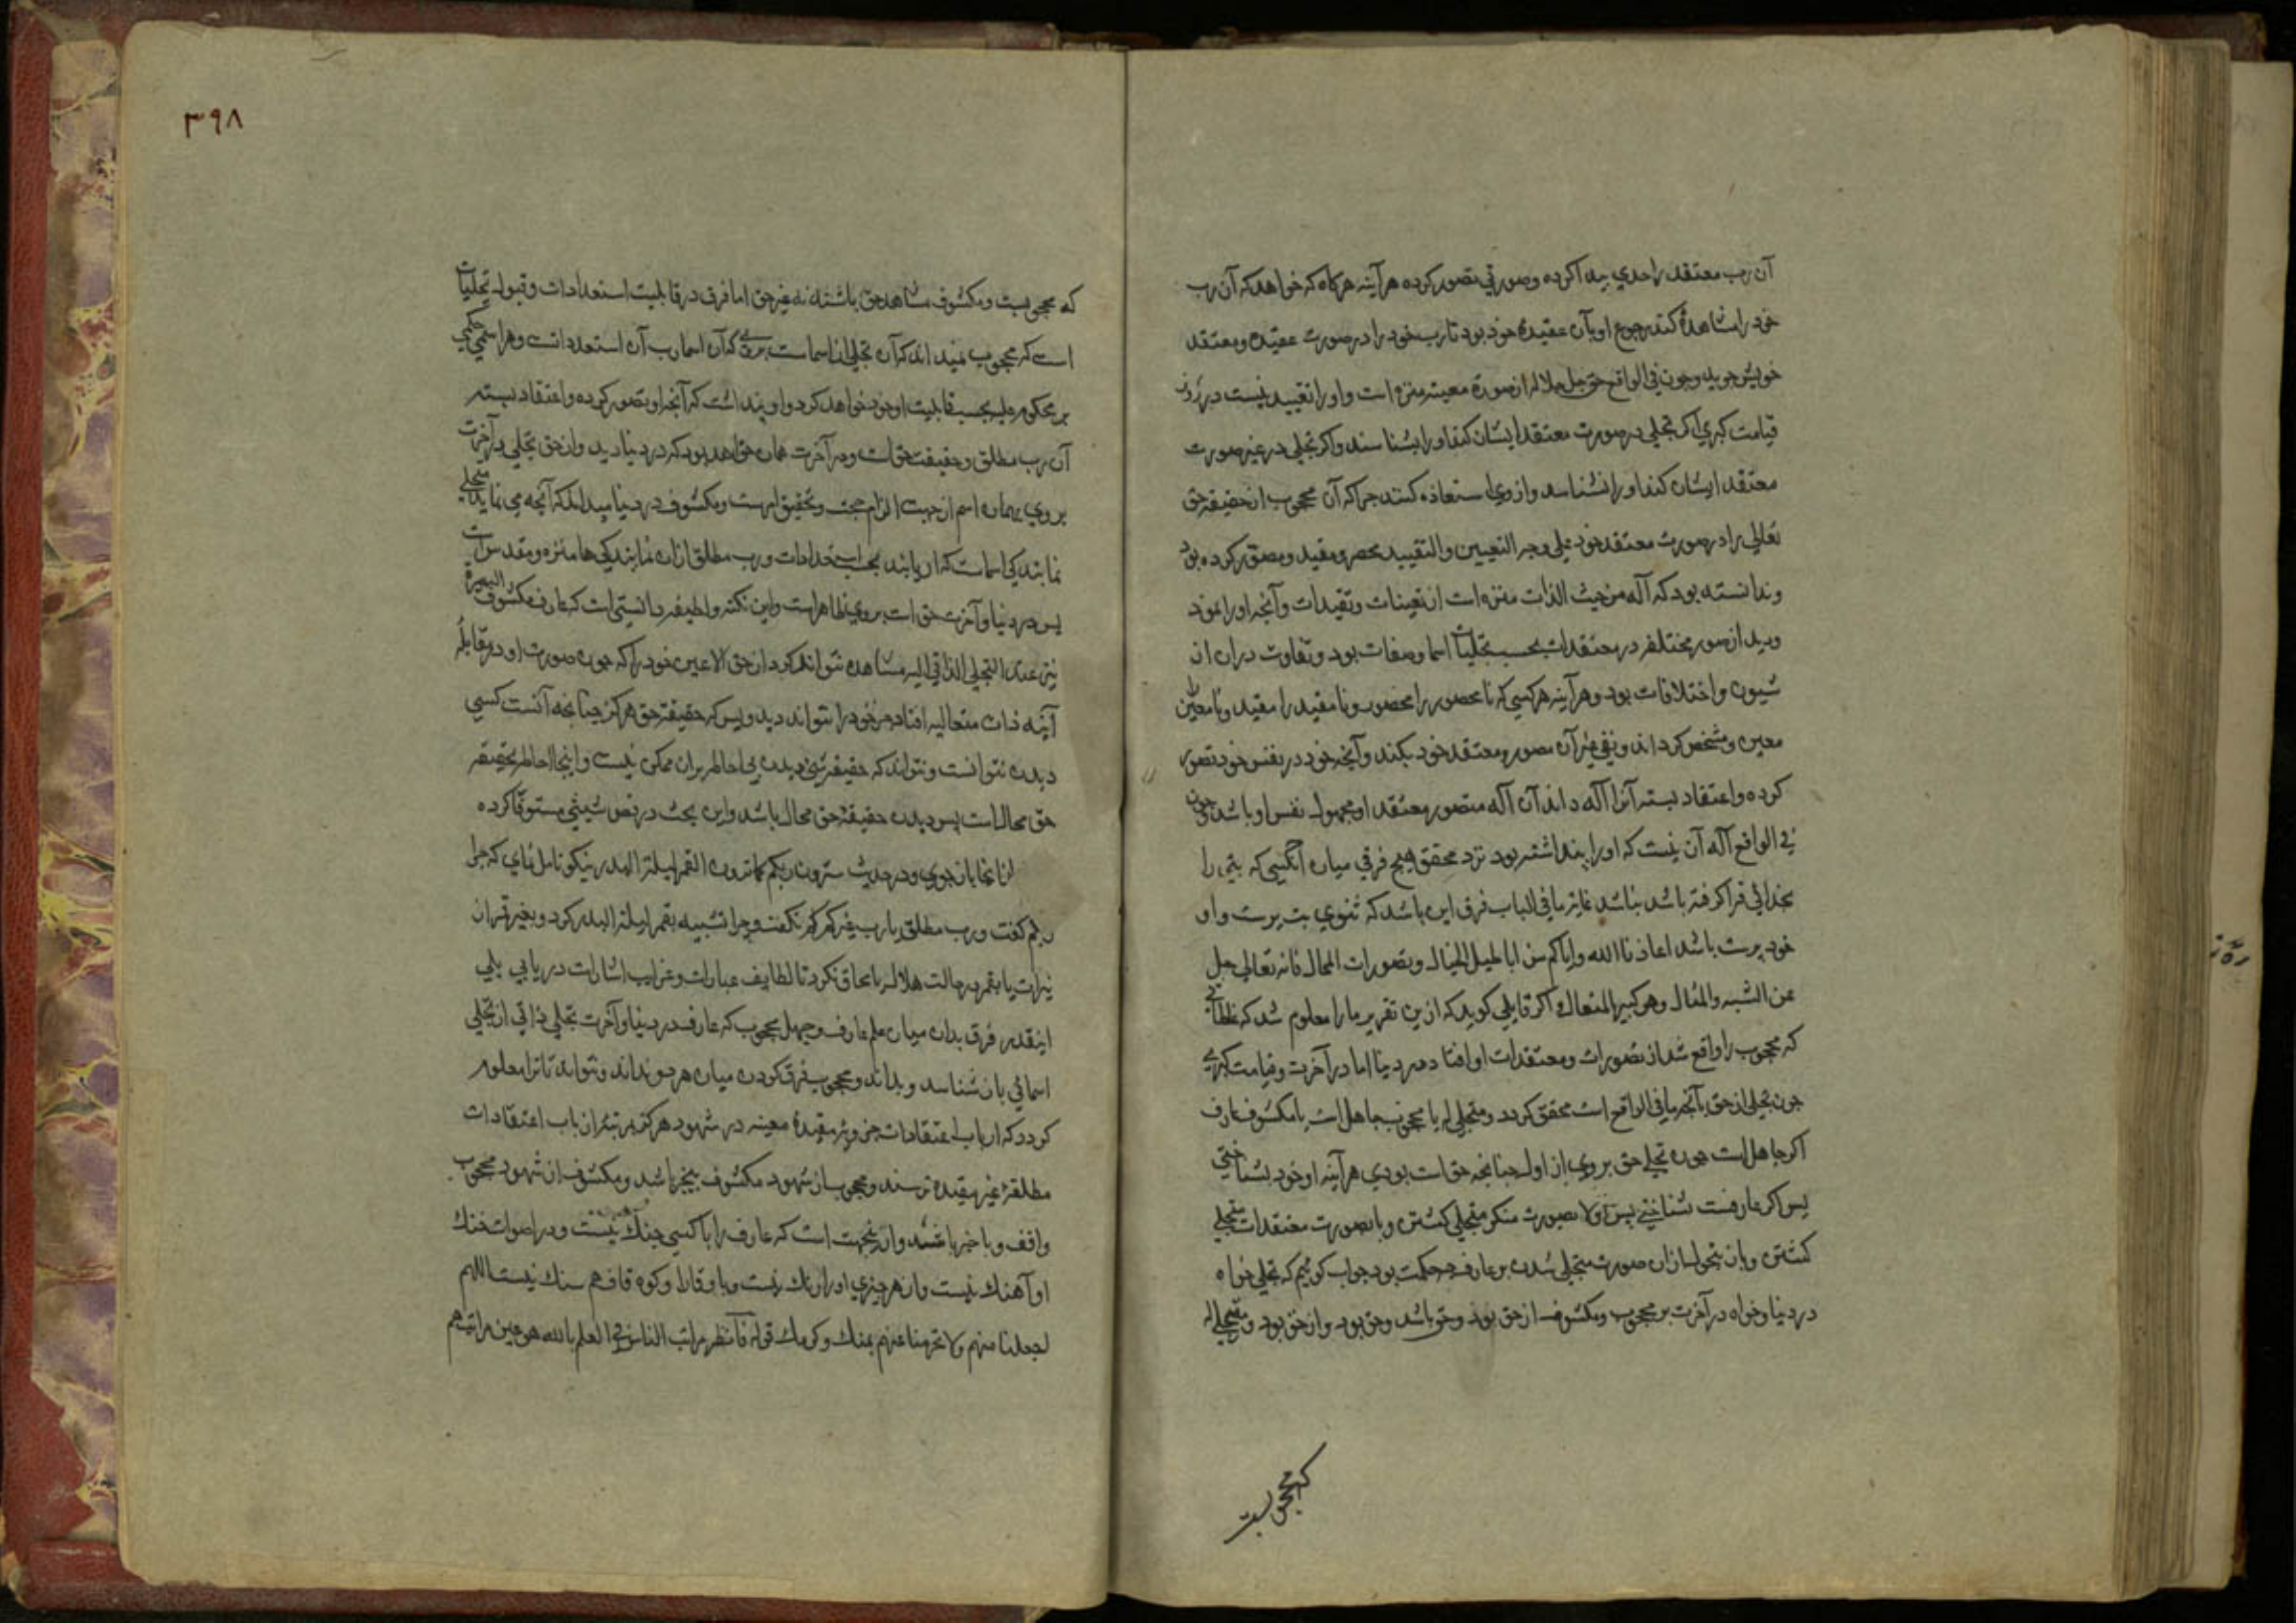 آن رب معتقد را حدي پيدا کرده وصورتي تصور کرده هرآينه هرکاه که خواهد که آن رب
خود را مشاهدۀ کند رجوع او بآن عقيدۀ خود بود تا رب خود را در صورت عقيده ومعتقد
خويش جويد وچون في الواقع حق جل جلاله از صورة معينه منزه است واو را تقييد نيست در روز
قيامت کبري اکر تجلي در صورت معتقد ايشان کند او را بشناسند واکر تجلي در غير صورت
معتقد ايشان کند او را نشناسد واز وي استعاذه کنند جراکه آن محجوب از حقيقة حق
تعالي را در صورت معتقد خود علي وجه التعيين والتقييد محصور مقيد ومصور کرده بود
وندانسته بود که آله من حيث الذات منزه است از تعينات وتقيدات وآنجه او را نمود
وديد از صور مختلفه در معتقدات بحسب تجليات اسما وصفات بود وتفاوت دران از
شيون واختلافات بود وهر آينه هرکسي که نامحصور را محصور ونامقيد را مقيد ونامعين را
معين ومشخص کرداند ونفي غير آن مصور ومعتقد خود بکند وآنجه خود در نفس خود تصور
کرده واعتقاد بسته آنرا آله داند آن آله متصور معتقد او مجهول نفس او باشد جون
في الواقع آله آن نيست که او را پنداشته بود نزد محقق هيچ فرقي ميان آنکسي که بتي را
بخدائي فرا کرفته باشد نباشد غاية ما في الباب فرق اين باشد که ثنوي بت پرست واو
خود پرست باشد اعاذنا الله واياکم من اباطيل الخيال وتصورات المحال فانه تعالي جل
عن الشبه والمثال وهو کبير المتعال اکر قايلي کويد که ازين تقرير ما را معلوم شد که خطائي
که محجوب را واقع شد از تصورات ومعتقدات او افتاد در دنيا اما در آخرت وقيامت کبري
جون تجلي از حق بآنجه ما في الواقع است محقق کردد ومتجلي له يا محجوب جاهل است يا مکشوف عارف
اکر جاهل است جون تجلي حق بر وي از اول جنانجه حق است بودي هرآينه او خود بشناختي
پس اکر عارفست شناختي پس اولا بصورت منکر متجلي کشتن ويا بصورت معتقدات متجلي
کشتن وبازتحول ازان صورت متجلي شدن بر عارف جه حکمت بود جواب کوئيم که تجلي خواه
در دنيا وخواه در آخرت بر محجوب ومکشوف از حق بود وحق باشد وحق بود واز حق بود ومتجلي له
که محجوبست
٣٩٨
که محجوبست ومکشوف مشاهد حق باشند نه غير حق اما فرق در قابليت استعدادات وقبول تجليات
است که محجوب نميداند که آن تجلي از اسماست بروي که آن اسما رب آن استعدداتست وهر اسمي حکمي
بر محکوم عليه بحسب قابليت او جود خواهد کرد واو پنداشت که آنجه او تصور کرده واعتقاد بسته
آن رب مطلق وحقيقت حق است ودر آخرت همان خواهد بود که در دنيا ديد واز حق تجلي در آخرت
بر وي بهمان اسم از جهت الزام حجت وتحقيق است ومکشوف در دنيا ميداند که آنچه مي نمايد متجلي
نمايندکي اسماست که اربابند بحسب استعدادات ورب مطلق ازان نمايندکي ها منزه ومقدس است
پس در دنيا وآخرت حق است بر وي ظاهر است واين نکته ولطيفه دانستني است که عارف مکشوف البصيرة
نيز عند التجلي الذاتي اليه مشاهده نتواند کرد از حق الا عين خود را که جون صورت او در مقابله
آينه ذات متعاليه افتاد جز خود را نتواند ديد وبس که حقيقة حق هرکز جنانجه آنست کسي
ديدن نتوانست ونتواند که حقيقة شي ديدن بي احاطه بران ممکن نيست واينجا احاطه بحقيقة
حق محالست پس ديدن حقيقة حق محال باشد واين بحث در فص شيثي مستوفا کرده
از انجا باز جوي ودر حديث سترون ربکم کما ترون القمر ليلة البدر نيکو تامل نماي که جرا
ربکم کفت ورب مطلق يا رب غيرکم نکفت وجرا تشبيه بقمر ليلة البدر کرد وبغير قمر از
نيرات يا بقمر در حالت هلال يا محاق نکرد تا لطايف عبارات وغرايب اشارات دريابي بلي
اينقدر فرق بدان ميان علم عارف وجهل محجوب که عارف در دنيا وآخرت تجلي ذاتي از تجلي
اسمائي باز شناسد وبداند ومحجوب فرق کردن ميان هر دو نداند ونتواند تا ترا معلوم
کردد که ارباب اعتقادات جزويه مقيدۀ معينه در شهود هرکز بمرتبۀ ارباب اعتقادات
مطلقۀ غير مقيده نرسند ومحجوب از شهود مکشوف بيخبر باشد ومکشوف از شهود محجوب
واقف وباخبر باشند وازينجهت است که عارف را با کسي جنک نيست ودر اصوات خنک
او آهنک نيست واز هرجيزي او را رنک نيست وبا وقار او کوه قاف هم سنک نيست اللهم
اجعلنا منهم ولا تحرمنا عنهم بمنک وکرمک قوله فانظر مراتب الناس في العلم بالله هو عين مراتبهم